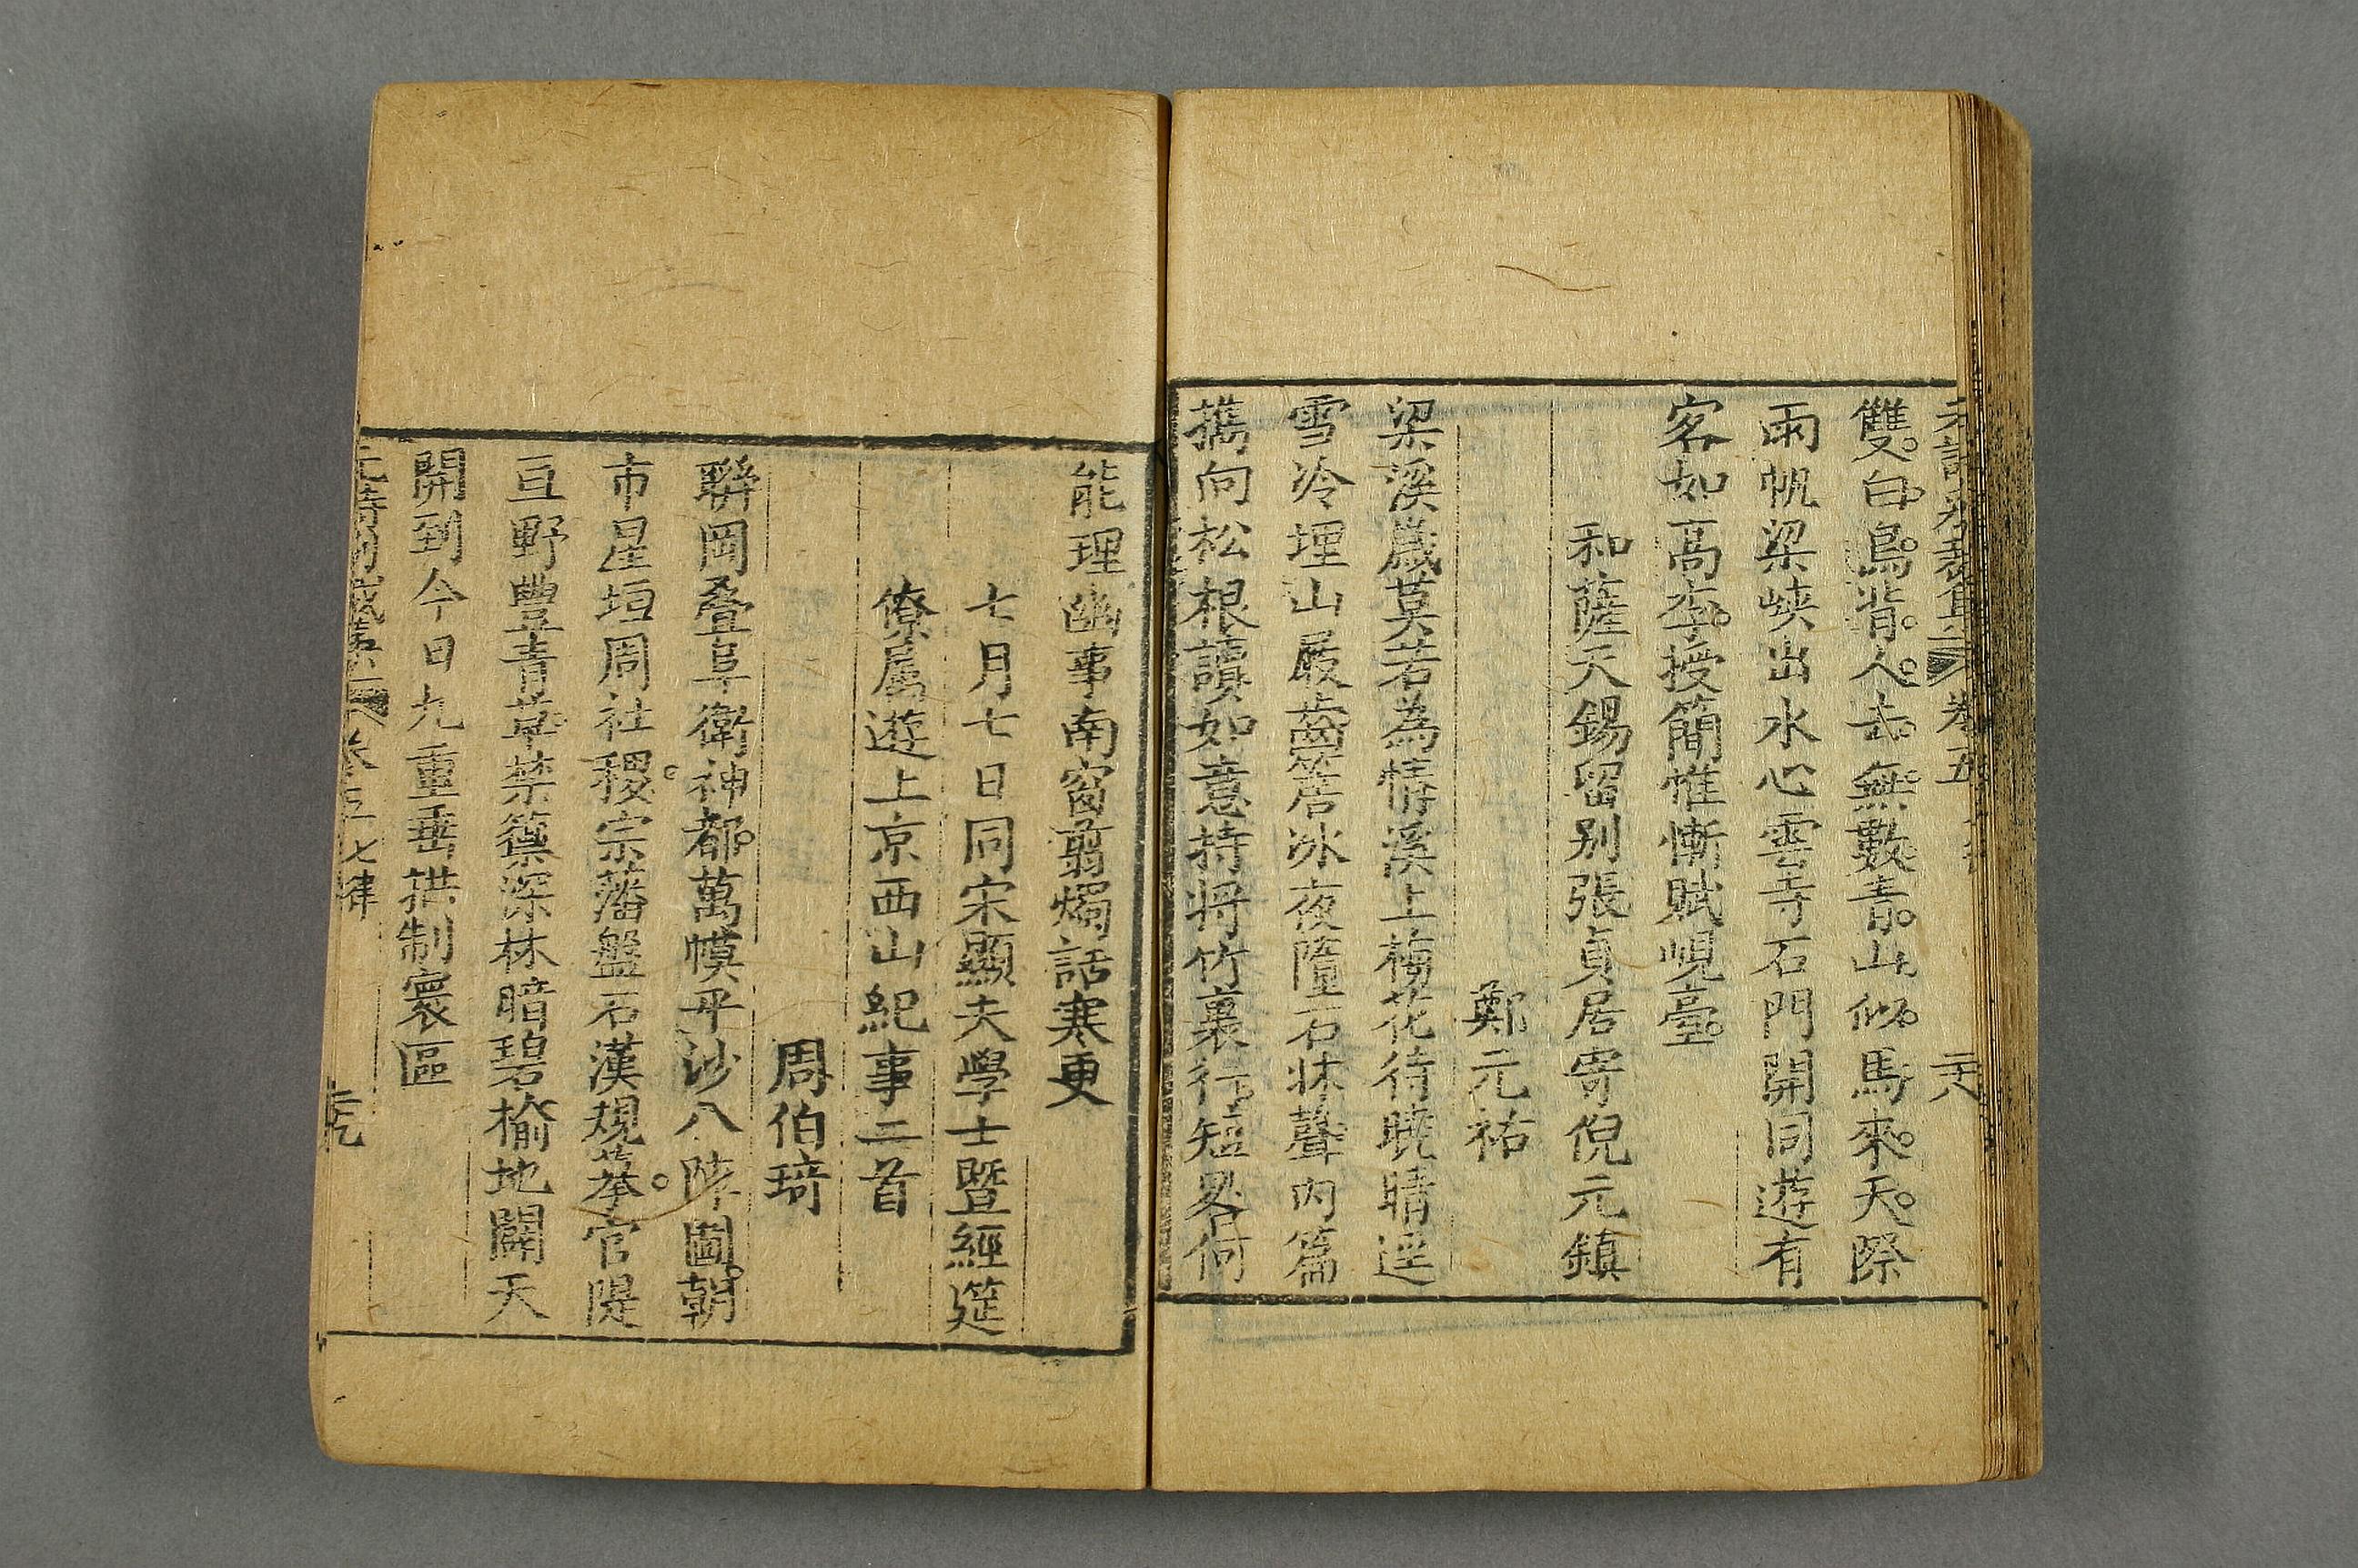 卷五
二八
雙白鳥背人去無數青山似馬來天際
雨帆梁峽出水心雲寺石門開同遊有
客如高李授簡惟慚賦峴臺
和薩天錫留別張貞居寄倪元鎮
鄭元祐
梁溪歲莫若為情溪上梅花待曉晴逕
雪冷埋山屐齒簷冰夜墮石牀聲內篇
攜向松根讀如意持將竹裏行短晷何
能理幽事南窗翦燭話寒更
七月七日同宋顯夫學士暨經筵
僚屬遊上京西山紀事二首
周伯琦
聯岡疊阜衛神都萬幙平沙八陣圖朝
市星垣周社稷宗藩盤石漢規摹官隄
亘野豐青草禁籞深林暗碧榆地闢天
開到今日九重垂拱制寰區
七律